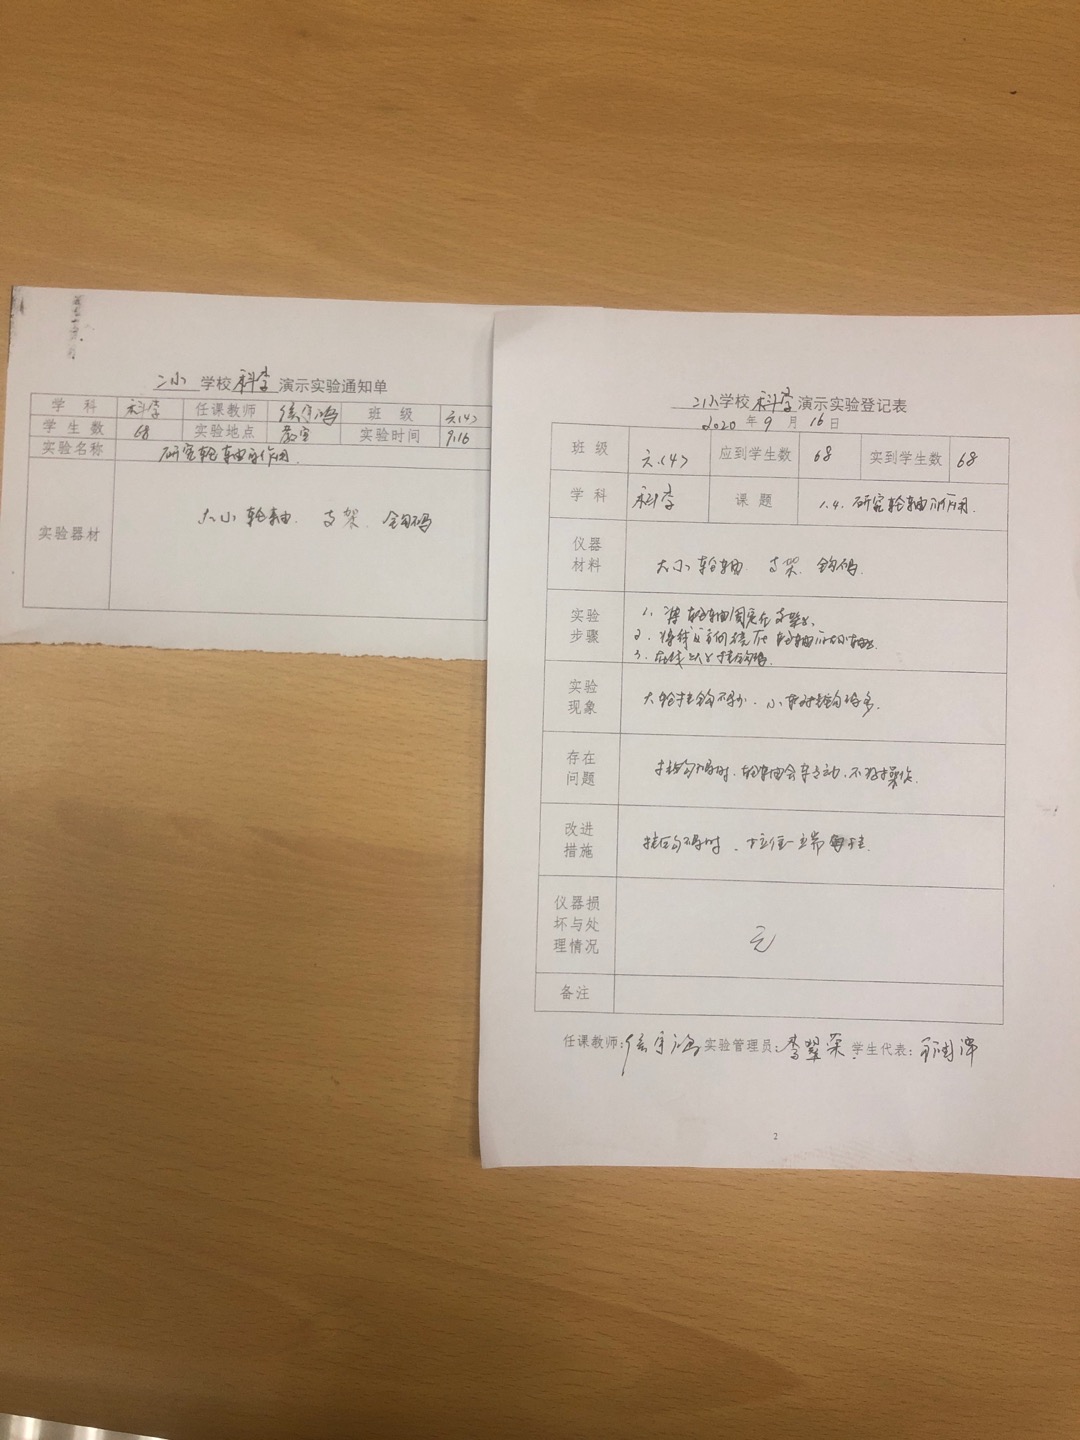 二小学校科学演示实验通知单
学科 科学 任课教师 班级 六(4)
学生数 68 实验地点 教室 实验时间 9.16
实验名称 研究轮轴的作用
实验器材 大小轮轴 支架 钩码
二小学校科学演示实验登记表
2020年9月16日
班级 六(4) 应到学生数 68 实到学生数 68
学科 科学 课题 1.4. 研究轮轴的作用.
仪器材料 大小轮轴 支架. 钩码.
实验步骤 1. 将轮轴固定在支架上.
2.
3. 在线上挂钩码.
实验现象
存在问题 挂钩码时.轮轴会转动.不好操作.
改进措施 挂钩码时.拉住一端
仪器损坏与处理情况 无
备注
任课教师: 实验管理员: 李翠荣 学生代表:
2